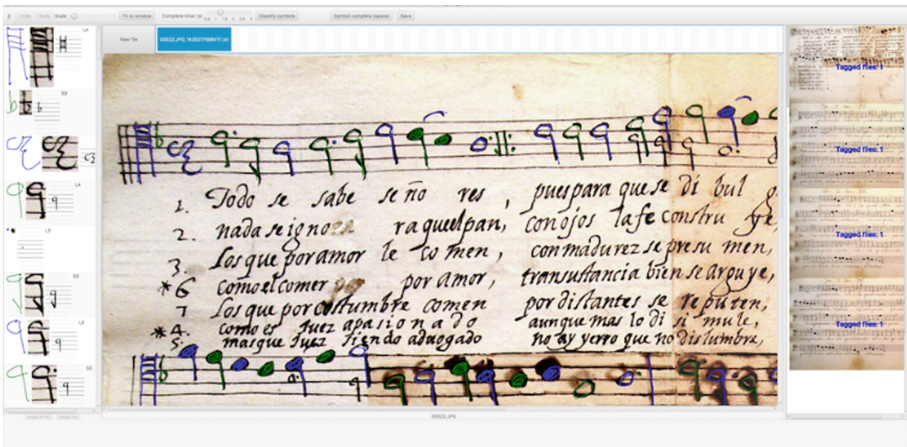 Undo Redo Scale Fit to window Complete time/ Classify symbols Symbol complete (space) Save
New Tile
Tagged files: 1
Tagged files: 1
Tagged files: 1
Tagged files: 1
1. Todo se sabe seño res, pues para que se di bul
2. nada se igno ra queelpan, con ojos la fe constru
3. Los que por amor le co men, con madurez se presu men,
*6 como el comer por amor, transustancia bien se arguye,
7 Los que por costumbre comen por distantes se reputen,
*4. como es Juez apasionado aunque mas lo di si mule,
5. mas que Juez siendo aduogado no ay yerro que no dislumbre,